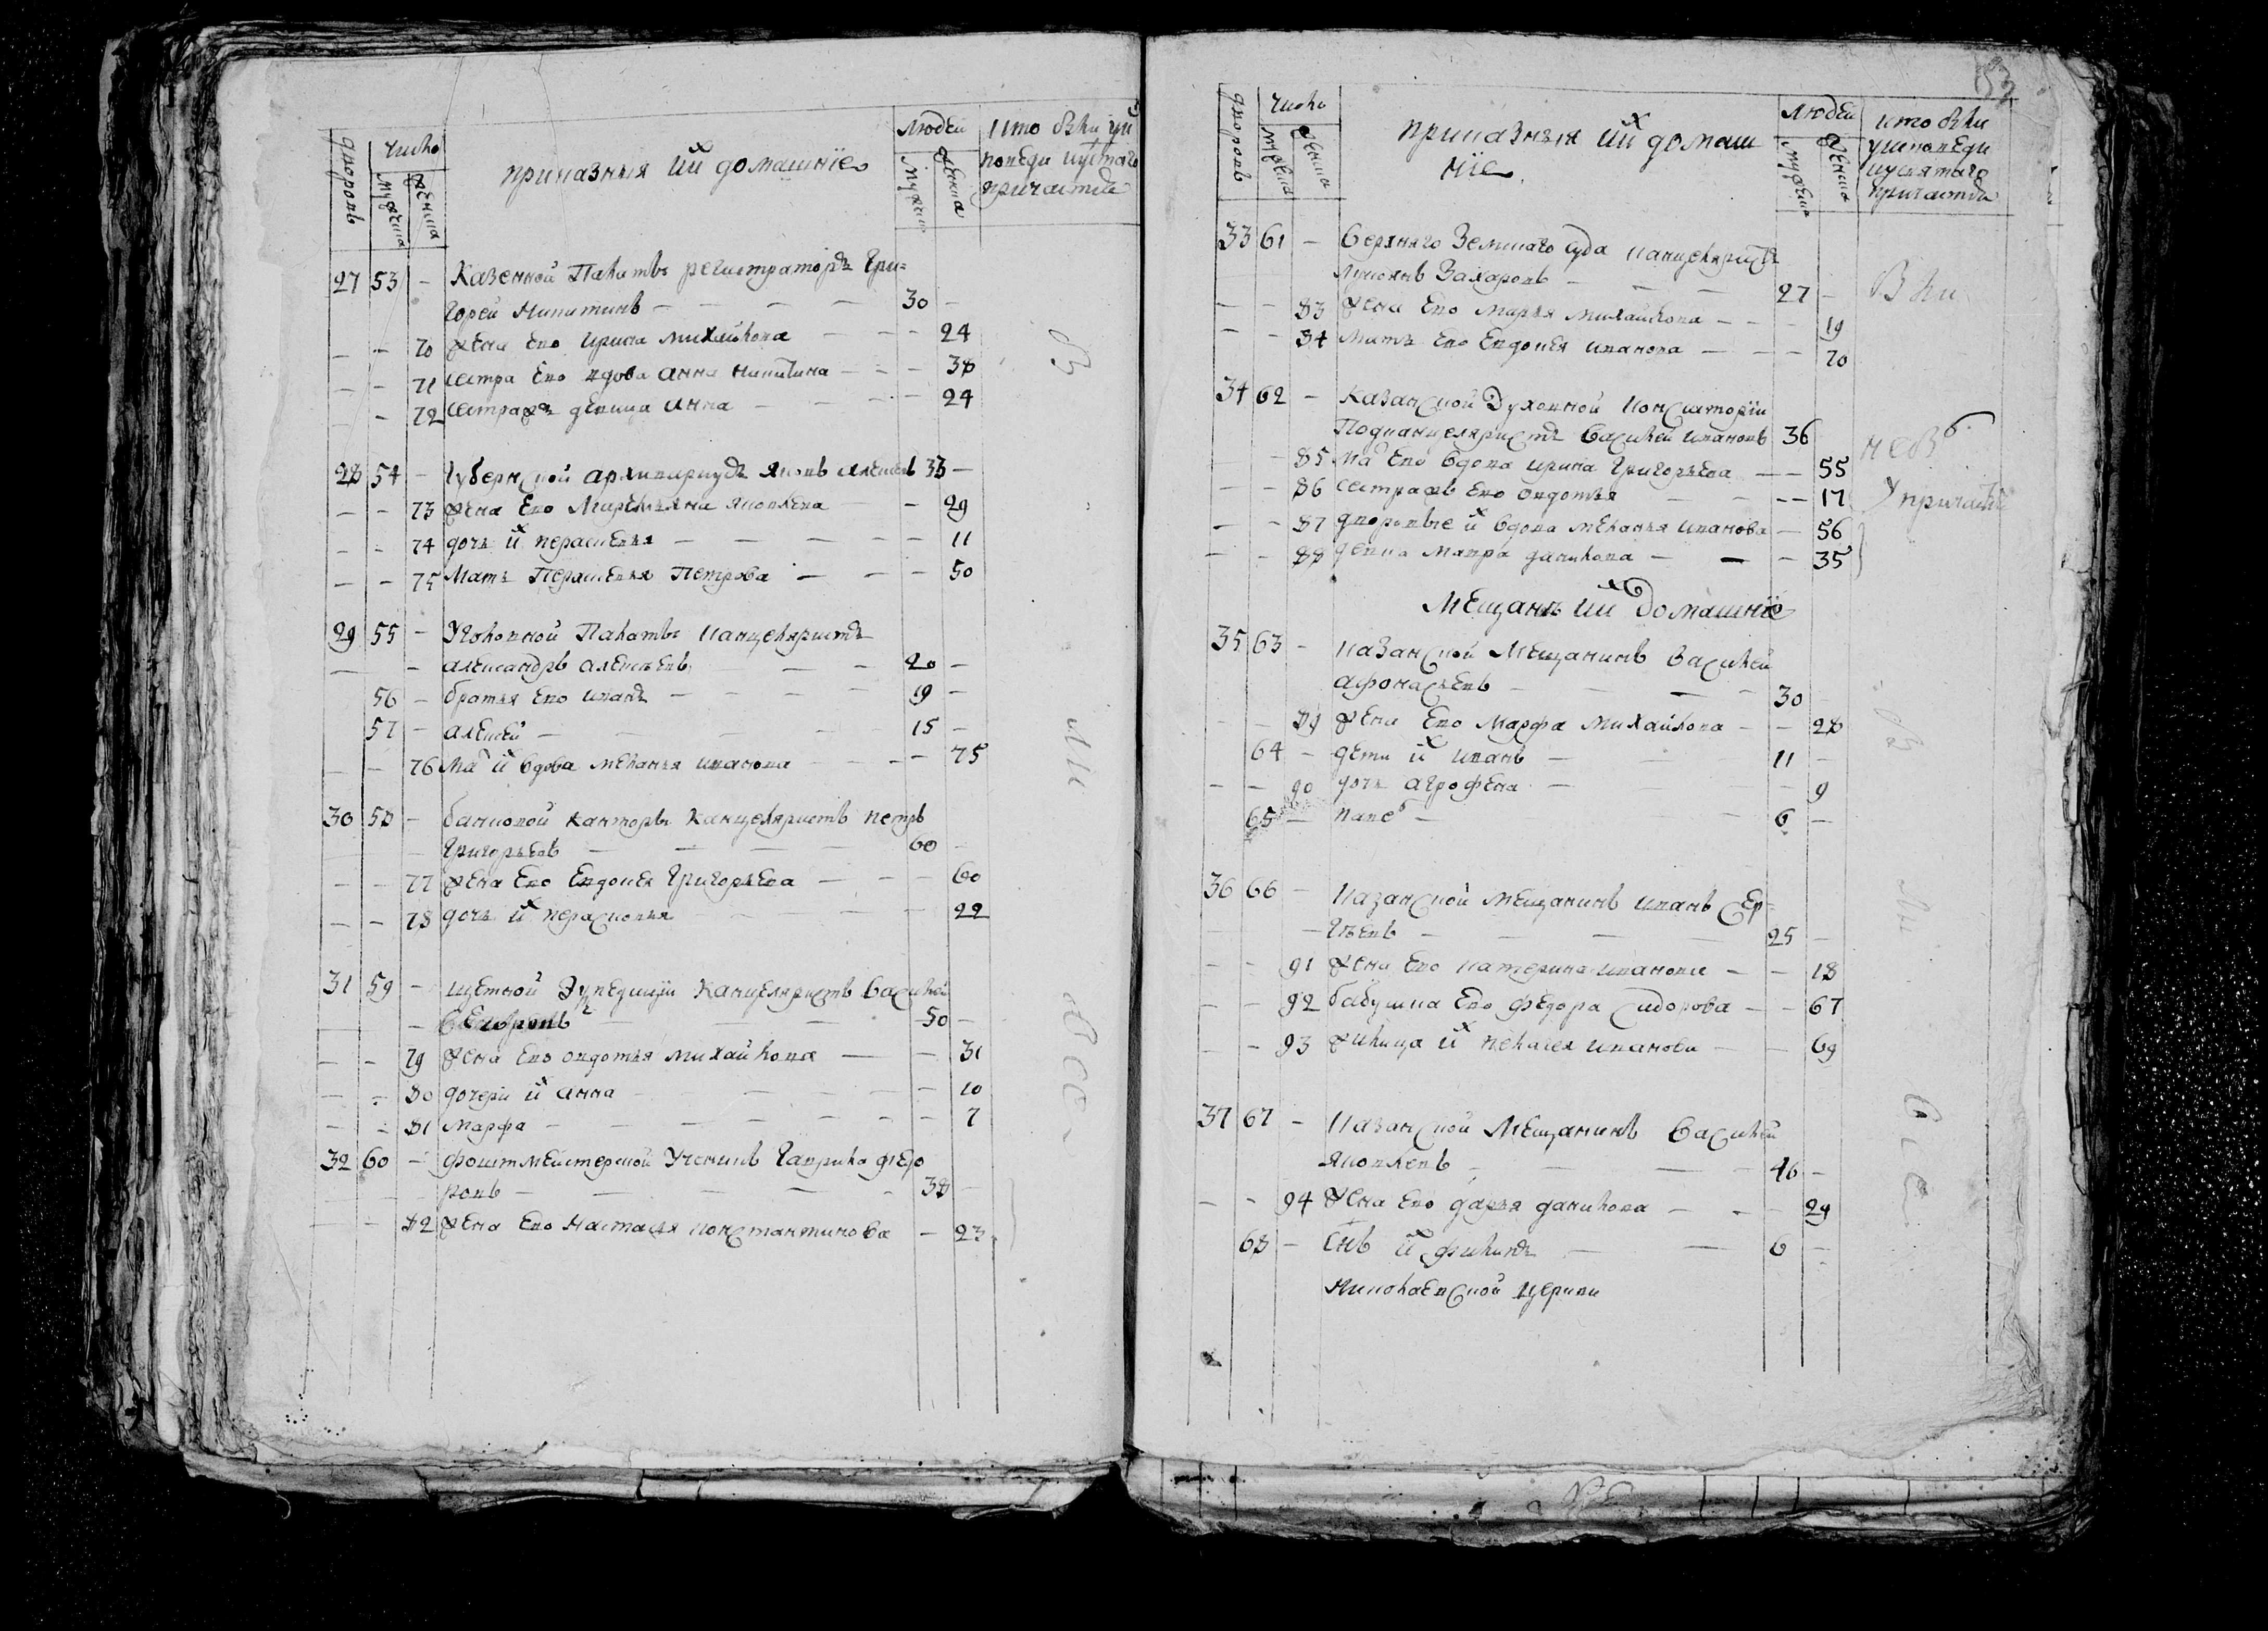 дворовъ
число
мужеска
женска
приказныя и их домашніе
людей
мужеска
женска
кто были у ис
поведи и святаго
причастія
27 53 – Казенной Палаты регистраторъ Гри-
горей Никитинъ – 30 –
– – 70 жена ево Ирина Михайлова – 24
– – 71 сестра ево вдова Анна Никитина – 38
– 72 сестра жъ девица Анна – 24
28 54 – Губернской архивариусъ Яковъ Алексеевъ 33 –
– – 73 жена ево Маремьяна Яковлева – 29
– – 74 дочь их Парасковья – 11
– – 75 Мать Парасковья Петрова – 50
29 55 – Уголовной Палаты канцеляристъ
– – александръ алексѣевъ – 20 –
56 – братья ево иванъ – 19 –
57 – алексей – 15 –
– – 76 Мать их вдова Меланья иванова – 75
30 58 – банковой канторы канцеляристъ петръ
– Григорьевъ – 60 –
– – 77 жена ево Евдокея Григорьева – 60
– – 78 дочь их парасковья – 22
31 59 – щетной Экспедиции канцеляристъ Василей
– – 50 –
– – 79 жена ево овдотья михайлова – 31
– – 80 дочери их анна – 10
– – 81 марфа – 7
32 60 – форштмейстерской Ученикъ Гаврила федо
ровъ – 38 –
– – 82 жена ево Настасья константинова – 23
бы
ли
все
53
дворовъ
число
мужеска
женска
приказныя и их домаш
ніе
людей
мужеска
женска
кто были
у исповеди
и святаго
причастія
33 61 – Верхняго Земскаго суда канцеляристъ
Лукоянъ Захаровъ – 27 –
– – 83 жена ево Марья михайлова – 19
– – 84 мать ево Евдокея иванова – 70
были
34 62 – казанской Духовной консистории
Подканцеляристъ василей ивановъ 36
– 85 мать ево вдова ирина Григорьева – 55
– – 86 сестра жъ ево овдотья – 17
– – 87 дворовые их вдова меланья иванова – 56
– – 88 девка мавра данилова – 35
не был
У причастия
Мещанъ и их домашніе
35 63 – казанской Мещанинъ василей
афонасьевъ – 30
– – 89 жена ево Марфа Михайлова – 28
64 – дети их иванъ – 11 –
– – 90 дочь агрофена – 9
65 – павел – 6 –
36 66 – казанской мещанинъ иванъ сер-
– геевъ – 25 –
– – 91 жена ево катерина иванова – 18
– – 92 бабушка ево федора сидорова – 67
– – 93 жилица их пелагея иванова – 69
37 67 – казанской Мещанинъ василей
яковлевъ – 46 –
– – 94 жена ево дарья данилова – 29
68 – сынъ их филипъ – 6 –
николаевской церкви
бы
ли
все